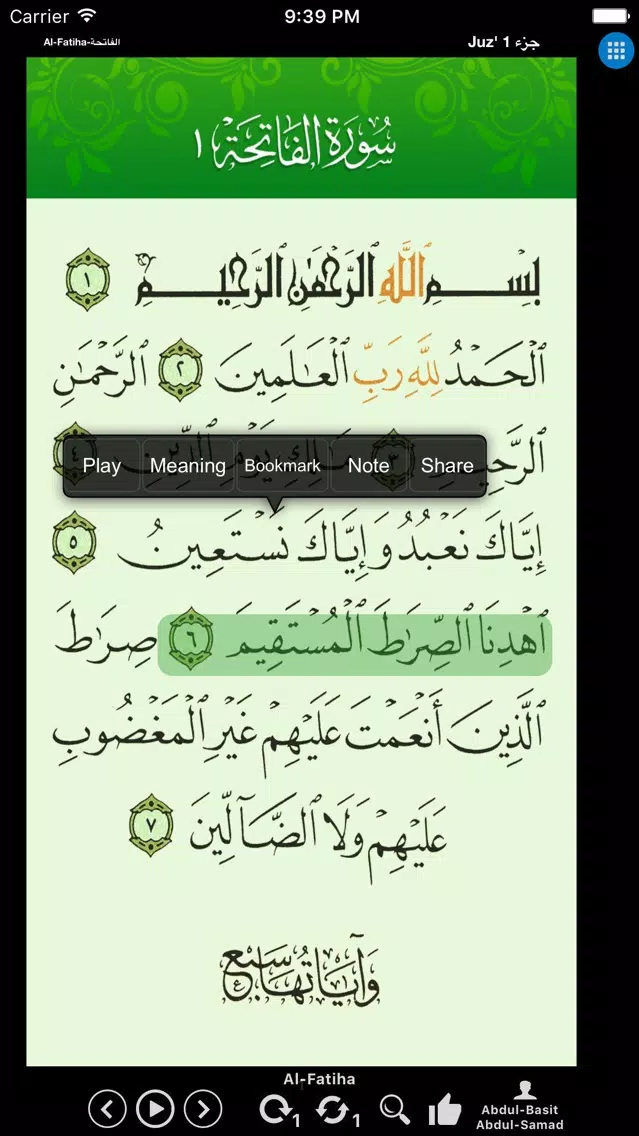 Carrier 9:39 PM
Al-Fatiha-الفاتحة Juz' 1 جزء
سُورَةُ الفَاتِحَة ١
بِسْمِ اللَّهِ الرَّحْمَٰنِ الرَّحِيمِ ١
الْحَمْدُ لِلَّهِ رَبِّ الْعَالَمِينَ ٢ الرَّحْمَٰنِ
الرَّحِيمِ ٣ مَالِكِ يَوْمِ الدِّينِ ٤
Play Meaning Bookmark Note Share
إِيَّاكَ نَعْبُدُ وَإِيَّاكَ نَسْتَعِينُ ٥
اهْدِنَا الصِّرَاطَ الْمُسْتَقِيمَ ٦ صِرَاطَ
الَّذِينَ أَنْعَمْتَ عَلَيْهِمْ غَيْرِ الْمَغْضُوبِ
عَلَيْهِمْ وَلَا الضَّآلِّينَ ٧
وَآيَاتُهَا سَبْع
Al-Fatiha
1 1
Abdul-Basit
Abdul-Samad